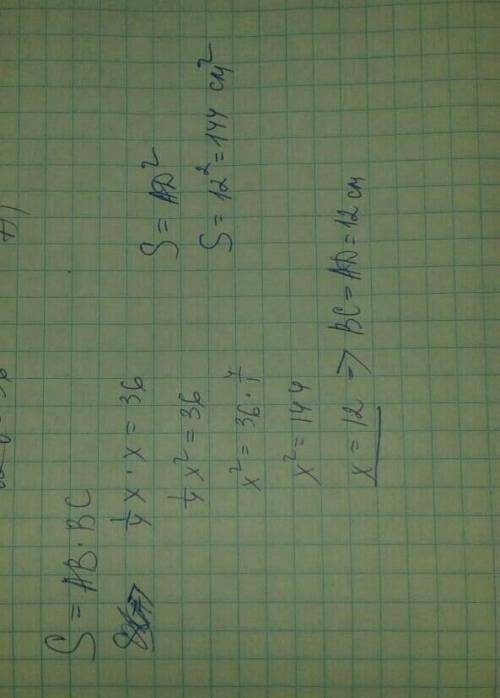 S = AB · BC
1/4 x · x = 36
1/4 x² = 36
x² = 36 · 4/1
x² = 144
x = 12 => BC = AD = 12 см
S = AD²
S = 12² = 144 см²